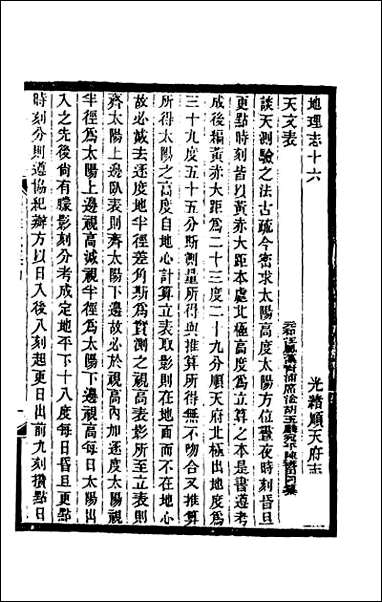 地理志十六
光緒順天府志
天文表
談天測驗之法古疏今密求太陽高度太陽方位晝夜時刻昏旦
更點時刻皆以黃赤大距本處北極高度爲立算之本是書遵考
成後編黃赤大距爲二十三度二十九分順天府北極出地度爲
三十九度五十五分斯測量所得與推算所得無不吻合又推算
所得太陽之高度自地心計算立表取影則在地面而不在地心
故必減去逐度地半徑差角斯爲實測之視高表影所至立表則
齊太陽上邊臥表則齊太陽下邊故必於視高內加逐度太陽視
半徑爲太陽上邊視高減視半徑爲太陽下邊視高每日太陽出
入之先後尙有矇影刻分考成定地平下十八度每日昏旦更點
時刻分則遵協紀辦方以日入後八刻起更日出前九刻攢點日